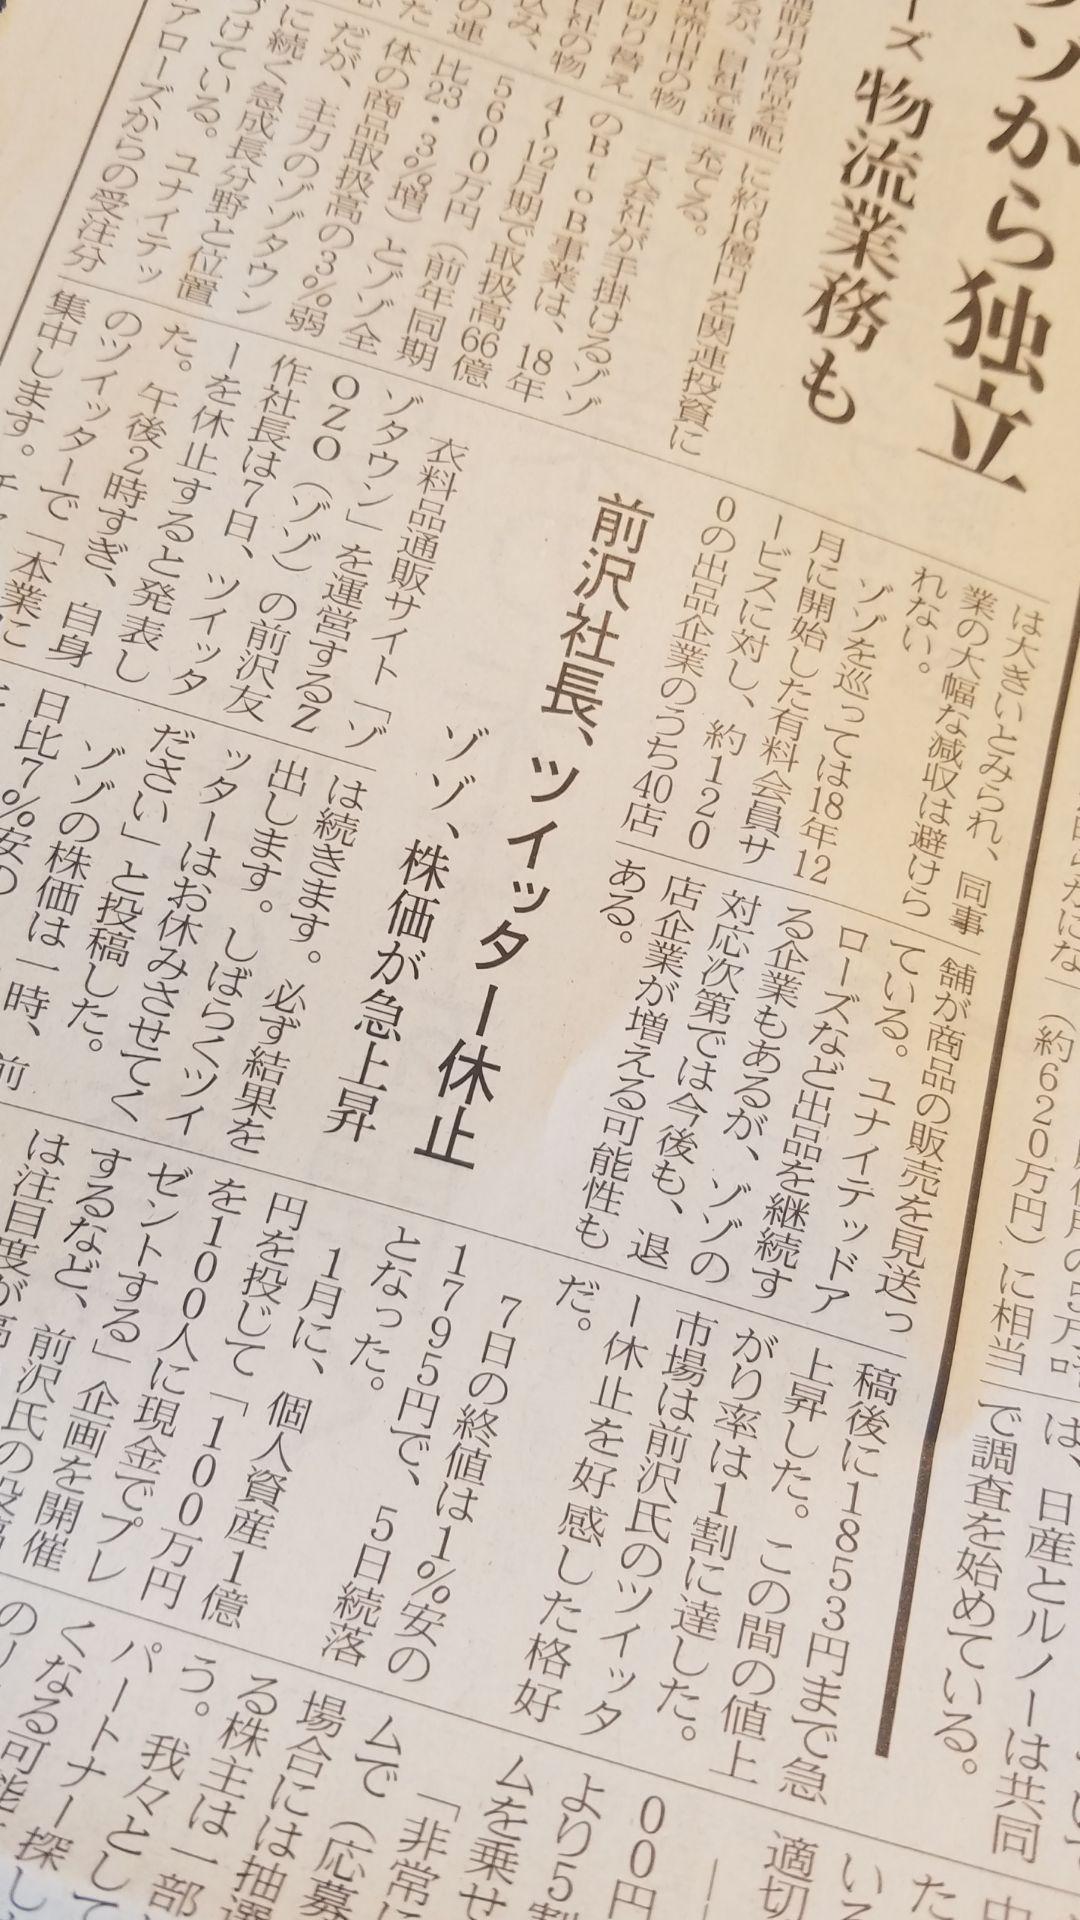 ゾから独立
ーズ 物流業務も
に約16億円を関連投資に
充てる。
子会社が手掛けるゾゾ
のBtoB事業は、18年
4〜12月期で取扱高66億
5600万円（前年同期
比23・3％増）とゾゾ全
体の商品取扱高の3％弱
だが、主力のゾゾタウン
に続く急成長分野と位置
づけている。ユナイテッ
アローズからの受注分
は大きいとみられ、同事
業の大幅な減収は避けら
れない。
ゾゾを巡っては18年12
月に開始した有料会員サ
ービスに対し、約120
0の出品企業のうち40店
舗が商品の販売を見送っ
ている。ユナイテッドア
ローズなど出品を継続す
る企業もあるが、ゾゾの
対応次第では今後も、退
店企業が増える可能性も
ある。
前沢社長、ツイッター休止
ゾゾ、株価が急上昇
衣料品通販サイト「ゾ
ゾタウン」を運営するZ
OZO（ゾゾ）の前沢友
作社長は7日、ツイッタ
ーを休止すると発表し
た。午後2時すぎ、自身
のツイッターで「本業に
集中します。チ
は続きます。必ず結果を
出します。しばらくツイ
ッターはお休みさせてく
ださい」と投稿した。
ゾゾの株価は一時、前
日比7％安の
稿後に1853円まで急
上昇した。この間の値上
がり率は1割に達した。
市場は前沢氏のツイッタ
ー休止を好感した格好
だ。
7日の終値は1％安の
1795円で、5日続落
となった。
1月に、個人資産1億
円を投じて「100万円
を100人に現金でプレ
ゼントする」企画を開催
するなど、前沢氏の投稿
は注目度が高
（約620万円）に相当
は、日産とルノーは共同
で調査を始めている。
00円
より5割
ムを乗せ
「非常に
ムで（応募
場合には抽選
る株主は一部
う。我々として
パートナー探し
くなる可能
適切